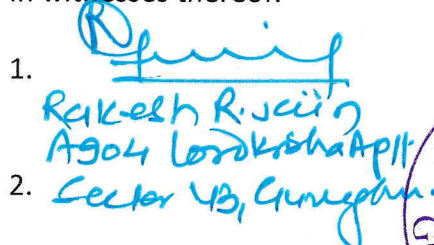 in witnesses thereof:
1.
Rakesh R. Jain
A904 Lordkrishna Aptt.
2. Sector 43, Gurugram.